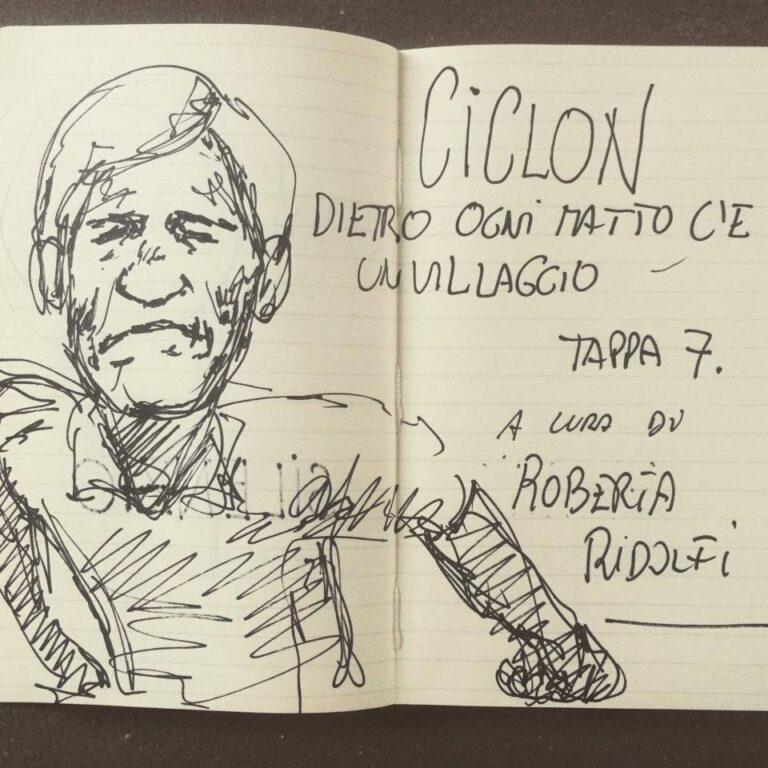 CICLON
DIETRO OGNI MATTO C'E
UN VILLAGGIO
TAPPA 7.
A CURA DI
ROBERTA
RIDOLFI